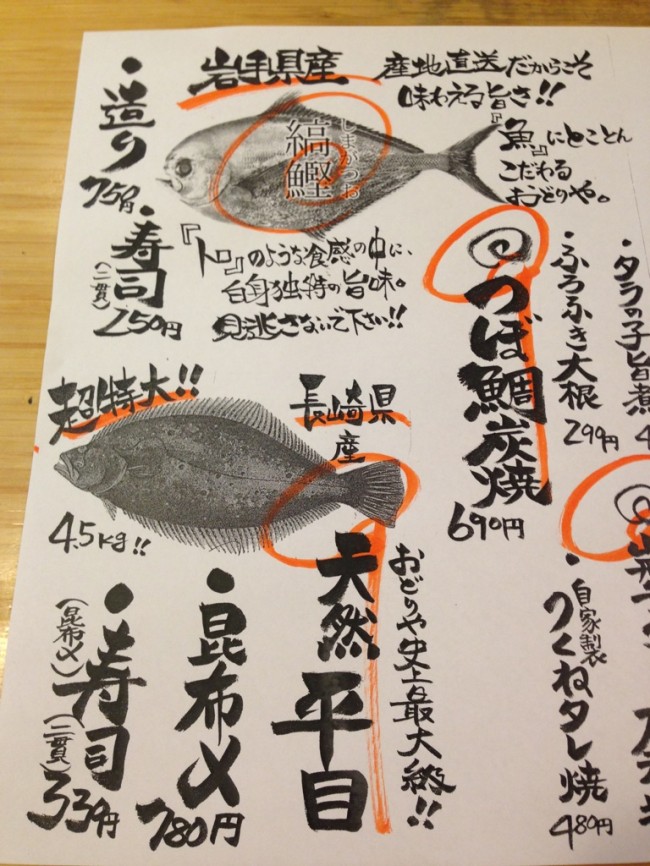 岩手県産
産地直送だからこそ
味わえる旨さ!!
『魚』にとことん
こだわる
おどりや。
縞鰹
しまがつお
・造り
・寿司
(二貫)
250円
『トロ』のような食感の中に、
白身独特の旨味。
見逃さないで下さい!!
つぼ鯛炭焼
690円
・ふろふき大根
299円
・タラの子旨煮
超特大!!
4.5kg!!
長崎県
産
天然平目
おどりや史上最大級!!
・昆布〆
780円
・寿司
(昆布〆)(二貫)
・自家製
つくねタレ焼
480円